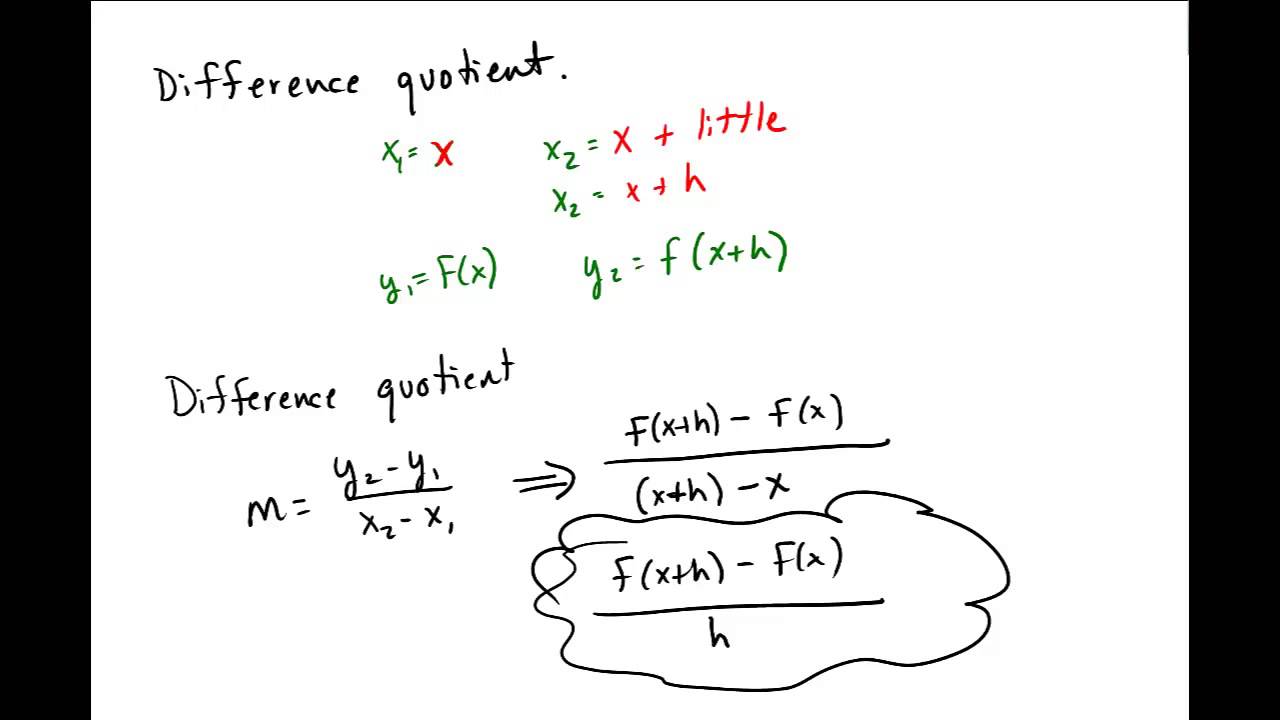 Difference quotient.
x₁ = x x₂ = x + little
x₂ = x + h
y₁ = F(x) y₂ = f(x+h)
Difference quotient
m = (y₂ - y₁)/(x₂ - x₁) ⇒ (F(x+h) - F(x))/((x+h) - x)
(f(x+h) - F(x))/h